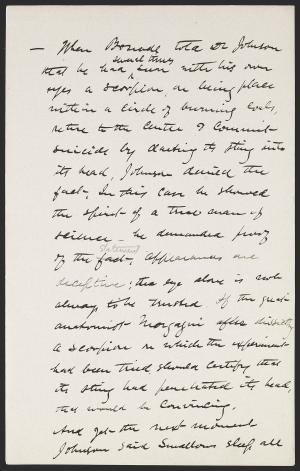 — When Boswell told Dr Johnson
sometimes
that he had seen with his own
eyes a scorpion, on being place
within a circle of burning coals,
retire to the centre & commit
suicide by darting its sting into
its head, Johnson denied the
fact. In this case he showed
the spirit of a true man of
science — he demanded proof
statement
of the fact, appearances are
deceptive; the eye alone is not
always to be trusted. If the great
anatomist Morgagni after dissecting
a scorpion on which the experiment
had been tried should certify that
its sting had penetrated its head,
that would be convincing.
And yet the next moment
Johnson said Swallows sleep all